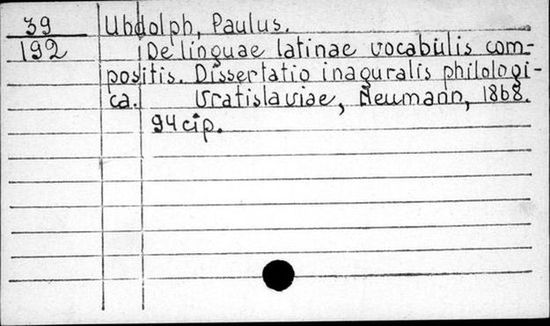 39 Uhdolph, Paulus.
192 De linguae latinae vocabulis com-
positis. Dissertatio inaguralis philologi-
ca. Vratislaviae, Neumann, 1868.
94 cip.